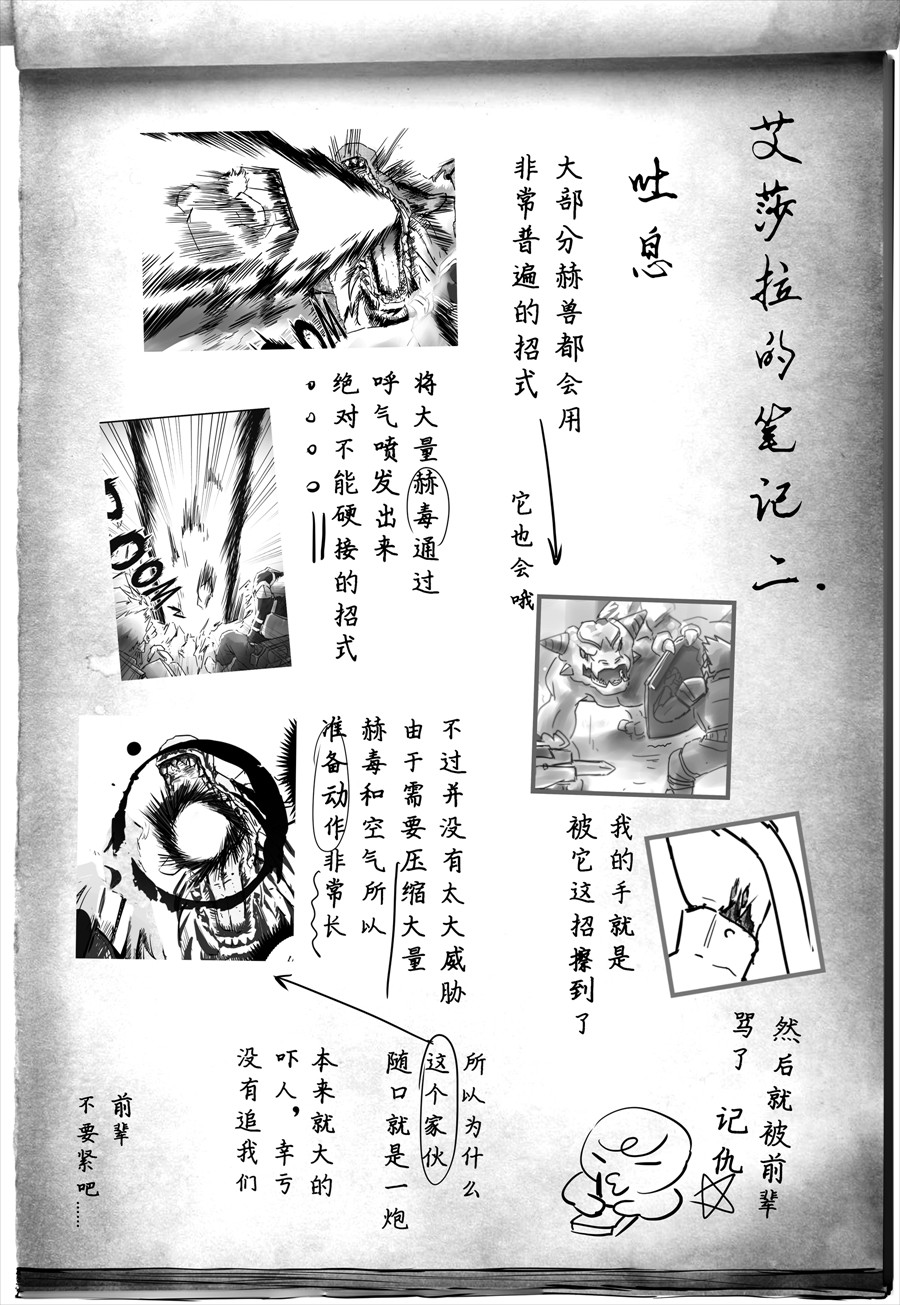 艾莎拉的笔记 二.
吐息
大部分赫兽都会用
非常普遍的招式
它也会哦
将大量赫毒通过
呼气喷发出来
绝对不能硬接的招式
。。。。!!
DOOM
我的手就是
被它这招擦到了
然后就被前辈
骂了
记仇
不过并没有太大威胁
由于需要压缩大量
赫毒和空气所以
准备动作非常长
所以为什么
这个家伙
随口就是一炮
本来就大的
吓人,幸亏
没有追我们
前辈
不要紧吧……